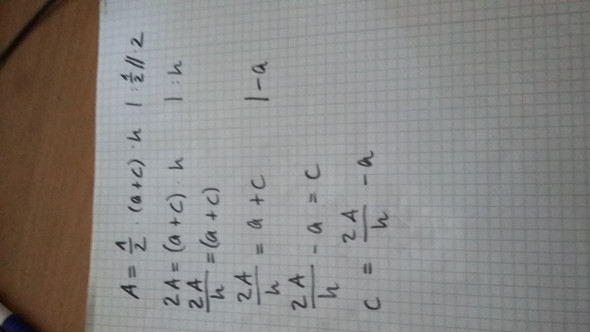 A = 1/2 · (a+c) · h | : 1/2 // · 2
2A = (a+c) · h | : h
2A/h = (a+c)
2A/h = a+c | -a
2A/h - a = c
c = 2A/h - a